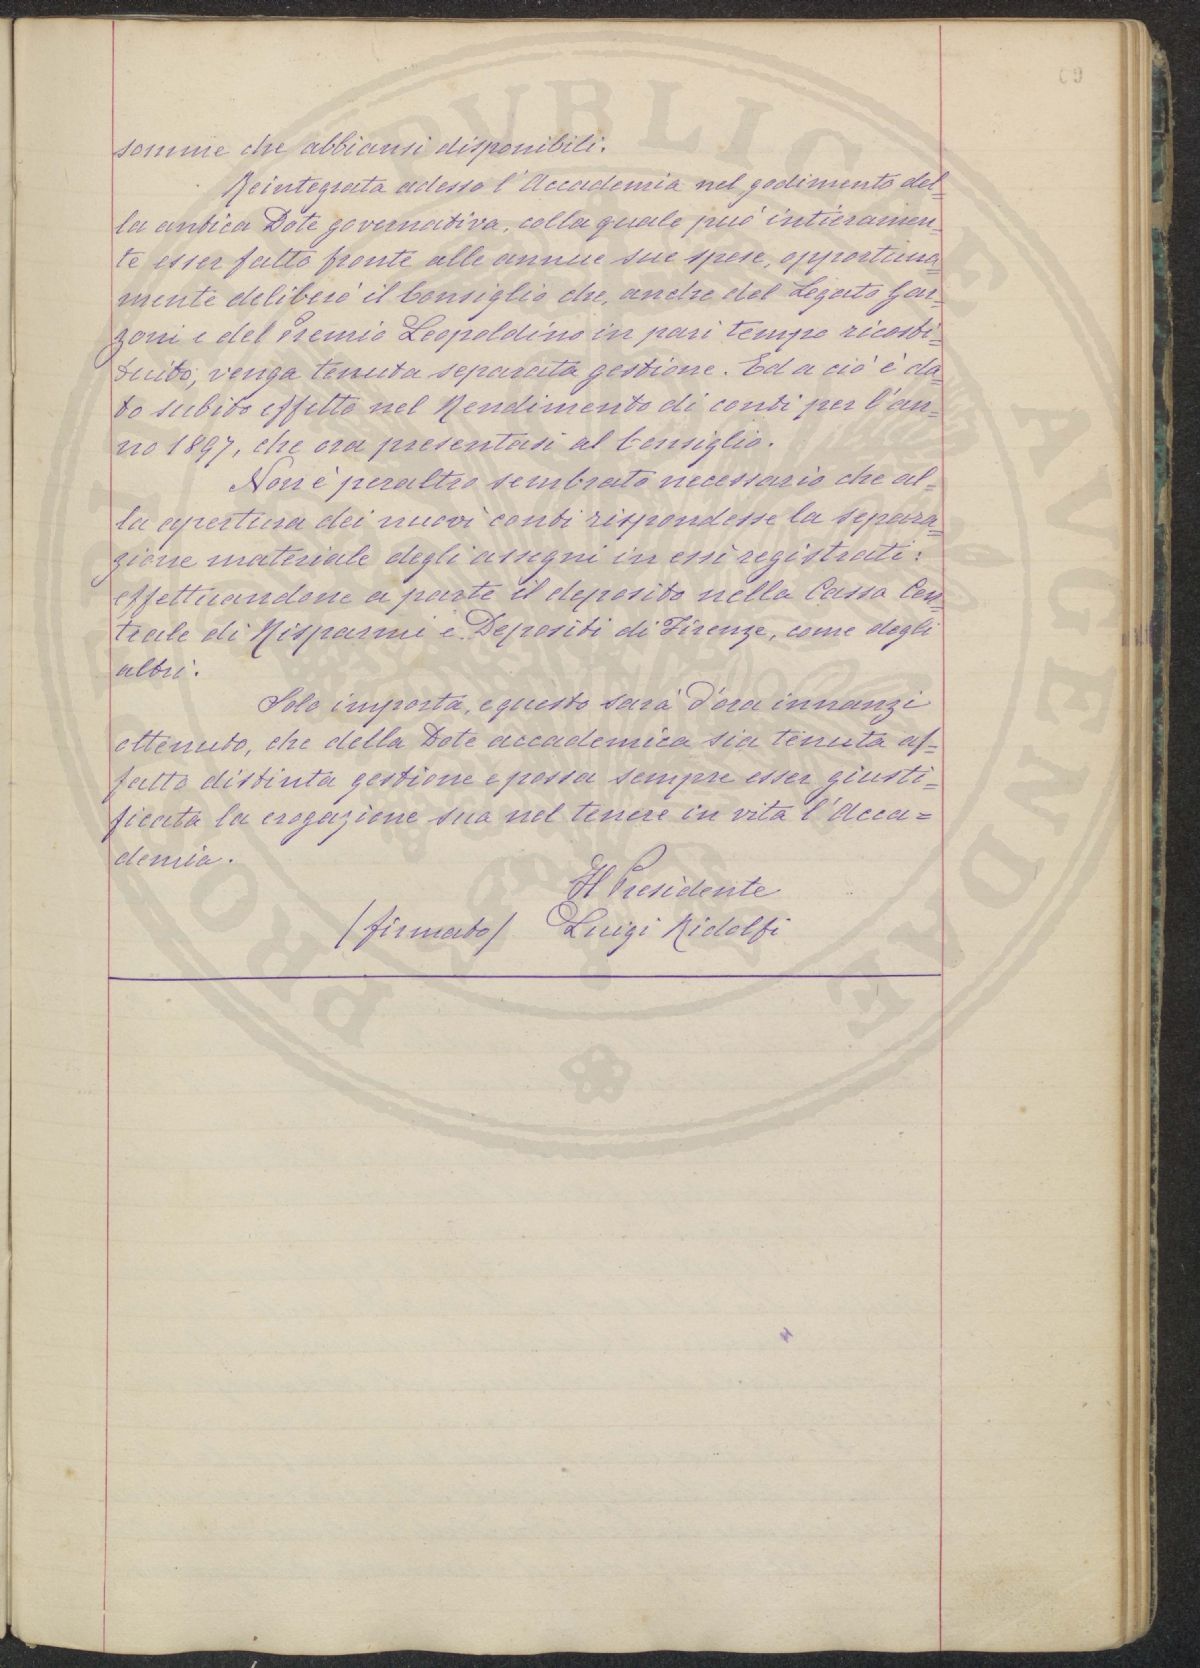 69
somme che abbiansi disponibili.
Reintegrata adesso l'Accademia nel godimento del=
la antica Dote governativa, colla quale può intieramen=
te esser fatto fronte alle annue sue spese, opportuna=
mente deliberò il Consiglio che, anche del Legato Gar=
zoni e del Premio Leopoldino in pari tempo ricosti=
tuito, venga tenuta separata gestione. Ed a ciò è da=
to subito effetto nel Rendimento di conti per l'an=
no 1897, che ora presentasi al Consiglio.
Non è peraltro sembrato necessario che al=
la apertura dei nuovi conti rispondesse la separa=
zione materiale degli assegni in essi registrati:
effettuandone a parte il deposito nella Cassa Cen=
trale di Risparmi e Depositi di Firenze, come degli
altri.
Solo importa, e questo sarà d'ora innanzi
ottenuto, che della Dote accademica sia tenuta af=
fatto distinta gestione e possa sempre esser giusti=
ficata la erogazione sua nel tenere in vita l'Acca=
demia.
Il Presidente
/firmato/ Luigi Ridolfi
PROSPERITATI PVBLICAE AVGENDAE